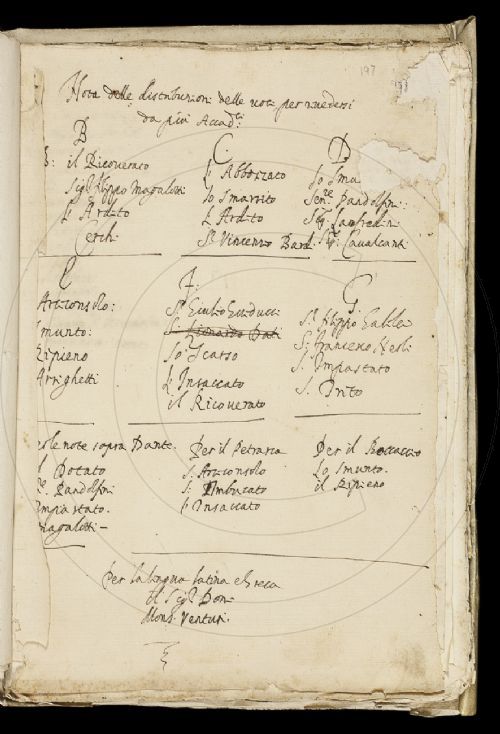 197
Nota delle distributioni delle voci per rivedersi
da più Accad.ci
B
il Ricoverato
Sig.r Filippo Magalotti
l'Ardito
Cerchi
C.
l'Abbozzato
lo Smarrito
L'Ardito
S.r Vincenzo Bardi
D
Lo Smu
Sen.re Pandolfini
Sig.r Lanfredini
Sig.r Cavalcanti
E
Arciconsolo:
Smunto:
Ripieno
Arrighetti
F.
S.r Giulio Guiducci
S.r Lionardo Dati
Lo Scarso
L'Insaccato
il Ricoverato
G
S.r Filippo Galilei
S.r Francesco Nerli
S. Impastato
S. Trito
le note sopra Dante.
Dotato
Pandolfini
mpastato.
Magalotti
Per il Petrarca
S. Arciconsolo
S. Imbucato
l'Insaccato
Per il Boccaccio
Lo Smunto.
il Ripieno
Per la lingua latina e Greca
Il Sig.r Doni
Mons. Venturi.